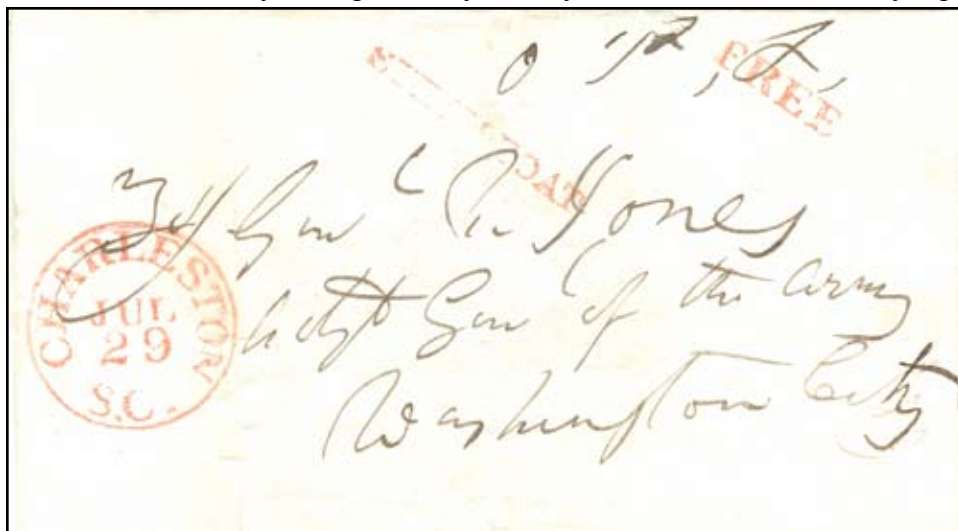 FREE
Genl R Jones
Adjt Gen of the army
Washington City
CHARLESTON
JUL
29
S.C.